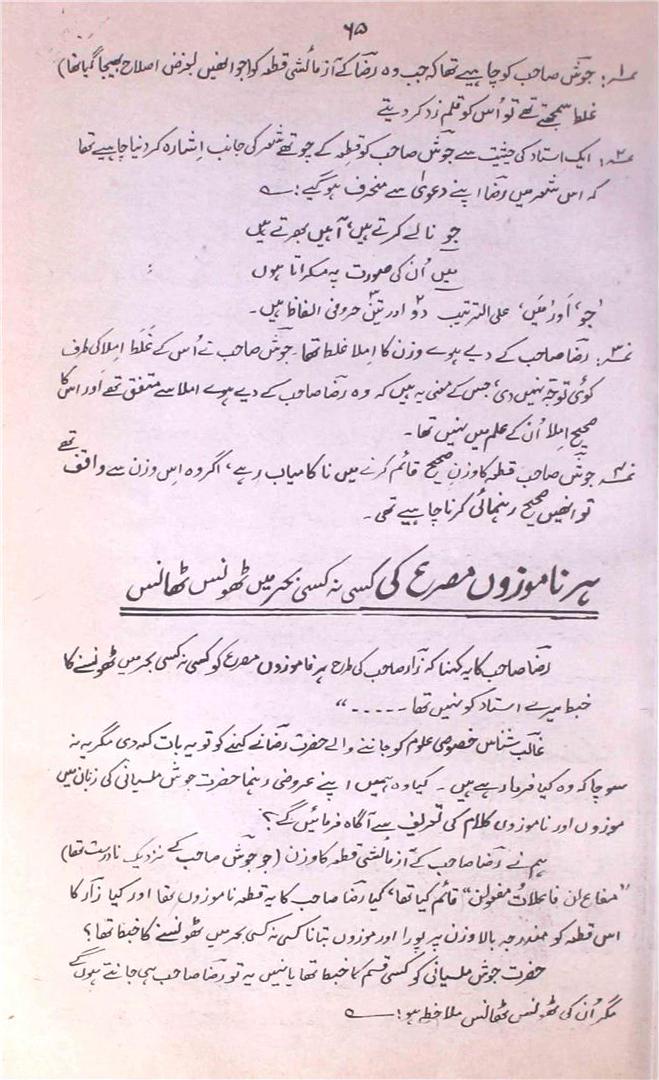 ۶۵
نمبر۱: جوشؔ صاحب کو چاہیے تھا کہ جب وہ رضاؔ کے آزمائشی قطعہ کو (جو انھیں بغرض اصلاح بھیجا گیا تھا)
غلط سمجھتے تھے تو اُس کو قلم زد کر دیتے
نمبر۲: ایک استاد کی حیثیت سے جوشؔ صاحب کو قطعہ کے چوتھے شعر کی جانب اشارہ کر دینا چاہیے تھا
کہ اس شعر میں رضاؔ اپنے دعویٰ سے منحرف ہو گیے:۔
جو نالے کرتے ہیں، آہیں بھرتے ہیں
میں اُن کی صورت پہ مسکراتا ہوں
'جو' اور 'میں' علی الترتیب دو۲ اور تین۳ حروفی الفاظ ہیں۔
نمبر۳: رضاؔ صاحب کے دیے ہوے وزن کا املا غلط تھا۔ جوشؔ صاحب نے اُس کے غلط املا کی طرف
کوئی توجّہ نہیں دی، جس کے معنی یہ ہیں کہ وہ رضاؔ صاحب کے دیے ہوے املا سے متفق تھے اور اس کا
صحیح املا اُن کے علم میں نہیں تھا۔
نمبر۴: جوشؔ صاحب قطعہ کا وزنِ صحیح قائم کرنے میں ناکامیاب رہے، اگر وہ اس وزن سے واقف تھے
تو انھیں صحیح رہنمائی کرنا چاہیے تھی۔
ہر ناموزوں مصرع کی کسی نہ کسی بحر میں ٹھونس ٹھانس
رضاؔ صاحب کا یہ کہنا کہ زار صاحب کی طرح ہر ناموزوں مصرع کو کسی نہ کسی بحر میں ٹھونسنے کا
خبط میرے استاد کو نہیں تھا ۔۔۔۔۔"
غالبؔ شناس خصوصی علوم کو جاننے والے حضرت رضاؔ نے کہنے کو تو یہ بات کہہ دی مگر یہ نہ
سوچا کہ وہ کیا فرما رہے ہیں۔ کیا وہ ہمیں اپنے عروضی رہنما حضرت جوش ملسیانی کی زبان میں
موزوں اور ناموزوں کلام کی تعریف سے آگاہ فرمائیں گے؟
ہم نے رضاؔ صاحب کے آزمائشی قطعہ کا وزن (جو جوشؔ صاحب کے نزدیک نادرست تھا)
"مفاعلن فاعلاتُ مفعولن" قائم کیا تھا، کیا رضاؔ صاحب کا یہ قطعہ ناموزوں تھا اور کیا زارؔ کا
اس قطعہ کو مندرجہ بالا وزن پر پورا اور موزوں بتانا کسی نہ کسی بحر میں ٹھونسنے کا خبط تھا؟
حضرت جوش ملسیانی کو کسی قسم کا خبط تھا یا نہیں یہ تو رضاؔ صاحب ہی جانتے ہوں گے
مگر اُن کی ٹھونس ٹھانس ملاحظہ ہو:۔